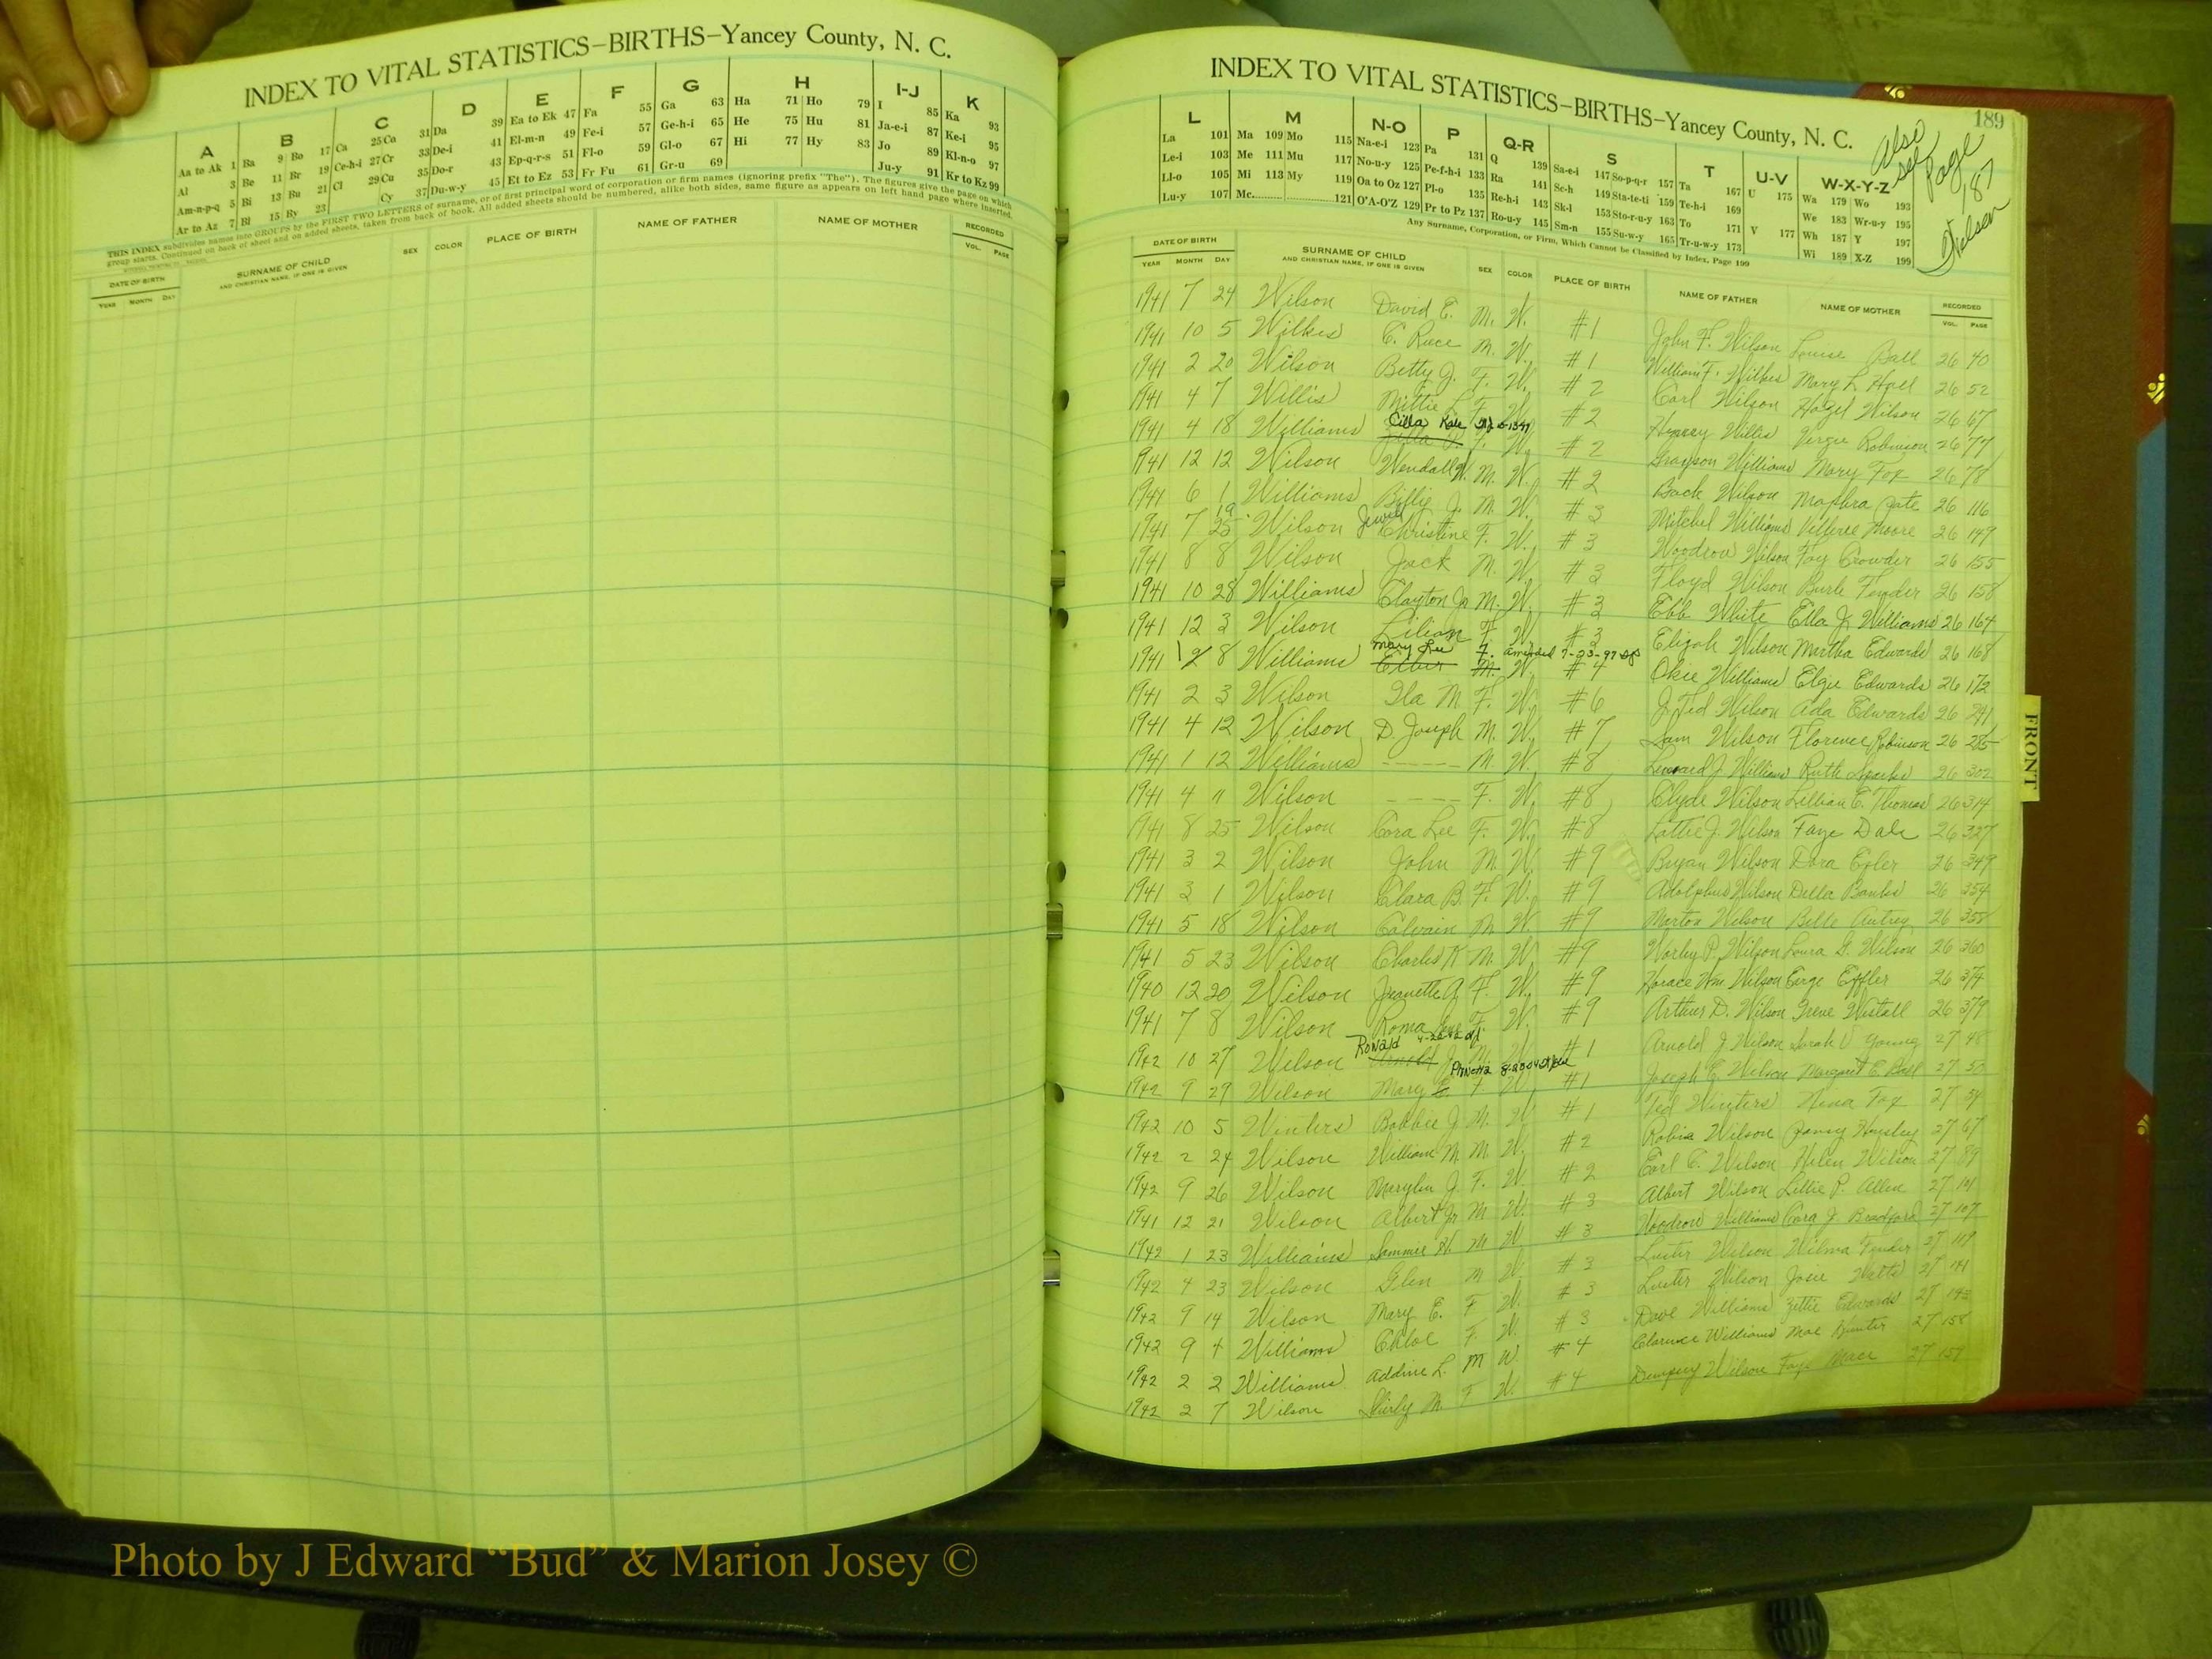 INDEX TO VITAL STATISTICS—BIRTHS—Yancey County, N. C.
A B C D E F G H I-J K
Aa to Ak 1 Ba 9 Bo 17 Ca 25 Co 31 Da 39 Ea to Ek 47 Fa 55 Ga 63 Ha 71 Ho 79 I 85 Ka 93
Al 3 Be 11 Br 19 Ce-h-i 27 Cr 33 De-i 41 El-m-n 49 Fe-i 57 Ge-h-i 65 He 75 Hu 81 Ja-e-i 87 Ke-i 95
Am-n-p-q 5 Bi 13 Bu 21 Cl 29 Cu 35 Do-r 43 Ep-q-r-s 51 Fl-o 59 Gl-o 67 Hi 77 Hy 83 Jo 89 Kl-n-o 97
Ar to Az 7 Bl 15 By 23 Cy 37 Du-w-y 45 Et to Ez 53 Fr Fu 61 Gr-u 69 Ju-y 91 Kr to Kz 99
THIS INDEX subdivides names into GROUPS by the FIRST TWO LETTERS of surname, or of first principal word of corporation or firm names (ignoring prefix "The"). The figures give the page on which
group starts. Continued on back of sheet and on added sheets, taken from back of book. All added sheets should be numbered, alike both sides, same figure as appears on left hand page where inserted.
DATE OF BIRTH SURNAME OF CHILD SEX COLOR PLACE OF BIRTH NAME OF FATHER NAME OF MOTHER RECORDED
YEAR MONTH DAY AND CHRISTIAN NAME, IF ONE IS GIVEN VOL. PAGE
INDEX TO VITAL STATISTICS—BIRTHS—Yancey County, N. C.
189
Also
see
Page
187
L M N-O P Q-R S T U-V W-X-Y-Z
La 101 Ma 109 Mo 115 Na-e-i 123 Pa 131 Q 139 Sa-e-i 147 So-p-q-r 157 Ta 167 U 175 Wa 179 Wo 193
Le-i 103 Me 111 Mu 117 No-u-y 125 Pe-f-h-i 133 Ra 141 Sc-h 149 Sta-te-ti 159 Te-h-i 169 We 183 Wr-u-y 195
Ll-o 105 Mi 113 My 119 Oa to Oz 127 Pl-o 135 Re-h-i 143 Sk-l 153 Sto-r-u-y 163 To 171 V 177 Wh 187 Y 197
Lu-y 107 Mc 121 O'A-O'Z 129 Pr to Pz 137 Ro-u-y 145 Sm-n 155 Su-w-y 165 Tr-u-w-y 173 Wi 189 X-Z 199
Any Surname, Corporation, or Firm, Which Cannot be Classified by Index, Page 199
DATE OF BIRTH SURNAME OF CHILD SEX COLOR PLACE OF BIRTH NAME OF FATHER NAME OF MOTHER RECORDED
YEAR MONTH DAY AND CHRISTIAN NAME, IF ONE IS GIVEN VOL. PAGE
1941 7 24 Wilson David E. M. W. #1 John F. Wilson Louise Ball 26 40
1941 10 5 Wilkes C. Ruce M. W. #1 William F. Wilkes Mary L. Hall 26 52
1941 2 20 Wilson Betty J. F. W. #2 Carl Wilson Hazel Wilson 26 67
1941 4 7 Willis Mittie L. F. W. #2 Henry Willis Virgie Robinson 26 77
1941 4 18 Williams Cilla Kate F. W. #2 Grayson Williams Mary Fox 26 78
1941 12 12 Wilson Wendall W. M. W. #2 Back Wilson Pate 26 116
1941 6 1 Williams Billie J. M. W. #3 Mitchel Williams Moore 26 149
1941 7 19 25 Wilson Jewel Christine F. W. #3 Woodrow Wilson Fay Crowder 26 155
1941 8 8 Wilson Jack M. W. #3 Floyd Wilson Burle 26 158
1941 10 28 Williams Clayton Jr M. W. #3 Ebb White Ella J. Williams 26 164
1941 12 3 Wilson Lilian F. W. #3 Elijah Wilson Martha Edwards 26 168
1941 8 Williams Mary Lee F. amended 7-23-97 W. #4 Okie Williams Elzie Edwards 26 172
1941 2 3 Wilson Ila M. F. W. #6 J. Ted Wilson Ada Edwards 26 241
1941 4 12 Wilson D. Joseph M. W. #7 Sam Wilson Florence Robinson 26 285
1941 1 12 Williams ----- M. W. #8 Leonard J. Williams Ruth Sparks 26 302
1941 4 11 Wilson ---- F. W. #8 Clyde Wilson Lillian E. Thomas 26 314
1941 8 25 Wilson Cora Lee F. W. #8 Lattie J. Wilson Faye Dale 26 327
1941 3 2 Wilson John M. W. #9 Bryan Wilson Dora 26 349
1941 3 1 Wilson Clara B. F. W. #9 Adolphus Wilson Della Banks 26 354
1941 5 18 Wilson Calvain M. W. #9 Morton Wilson Belle Autrey 26 358
1941 5 23 Wilson Charles K M. W. #9 Worley P. Wilson Laura G. Wilson 26 360
1940 12 20 Wilson Jeanette A. F. W. #9 Horace Wm. Wilson Effler 26 374
1941 7 8 Wilson Roma F. W. #9 Arthur D. Wilson Irene Wistall 26 379
1942 10 27 Wilson Ronald J. M. W. #1 Arnold J. Wilson Sarah V. Young 27 48
1942 9 29 Wilson Mary E. F W. #1 Joseph E. Wilson Margaret E. Ball 27 50
1942 10 5 Winters Bobbie J. M. W. #1 Ted Winters Fox 27 54
1942 2 24 Wilson William M. M. W. #2 Wilson Pansy Hensley 27 67
1942 9 26 Wilson Marylin J. F. W. #2 Earl C. Wilson Helen Wilson 27 89
1941 12 21 Wilson Albert Jr M W. #3 Albert Wilson Lillie P. Allen 27 101
1942 1 23 Williams Sammie H. M W #3 Woodrow Williams Cora J. Bradford 27 107
1942 4 23 Wilson Glen M W. #3 Luster Wilson Wilma 27 119
1942 9 14 Wilson Mary E. F W. #3 Luster Wilson Josie Watts 27 141
1942 9 4 Williams Chloe F. W. #3 Dave Williams Zettie Edwards 27 142
1942 2 2 Williams Addine L. M W. #4 Clarence Williams Mae Hunter 27 158
1942 2 7 Wilson Shirly M. F W. #4 Dempsey Wilson Faye Mace 27 159
FRONT
Photo by J Edward “Bud” & Marion Josey ©